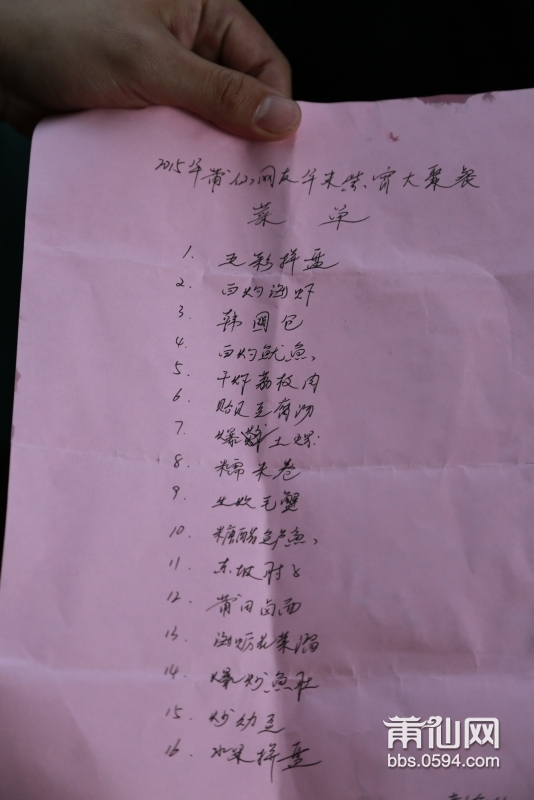 2015年莆仙网友年末尝宵大聚餐
菜单
1. 五彩拼盘
2. 白灼海虾
3. 韩国包
4. 白灼鱿鱼
5. 干炸荔枝肉
6. 豆腐汤
7. 爆 土螺
8. 糯米卷
9. 生炊毛蟹
10. 糖醋鲈鱼
11. 东坡肘子
12. 莆田卤面
13. 海蛎花菜溜
14. 爆炒鱼肚
15. 炒幼豆
16. 水果拼盘
莆仙网
bbs.0594.com